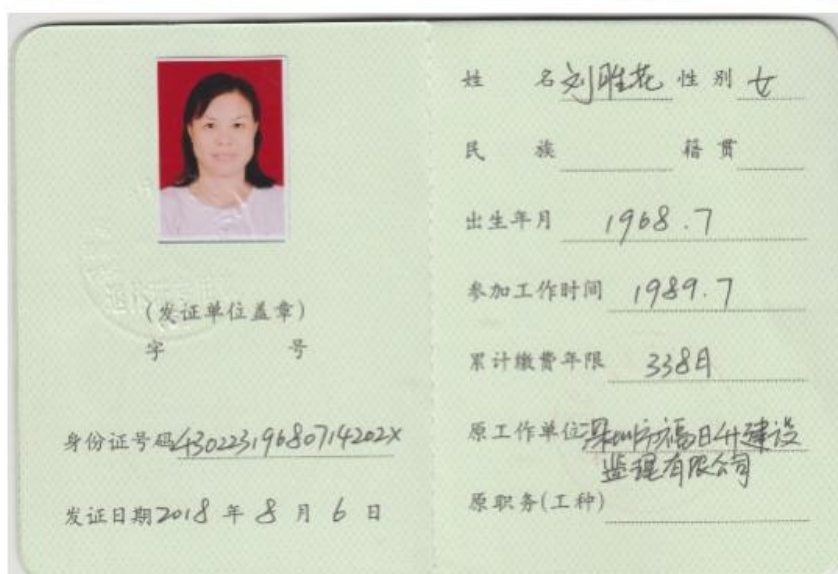 (发证单位盖章)
字 号
身份证号码43022319680714202X
发证日期2018年8月6日
姓 名刘胜花 性别女
民 族 籍贯
出生年月 1968.7
参加工作时间 1989.7
累计缴费年限 338月
原工作单位深圳市福日升建设
监理有限公司
原职务(工种)